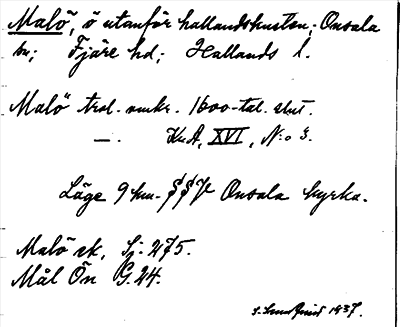 Malö, ö utanför hallandskusten; Onsala
sn; Fjäre hd; Hallands l.
Malö trol. omkr. 1600-tal. slut.
—. KrA, XVI, N:o 3.
Läge 9 km. SSV Onsala kyrka.
Malö sk, Sj: 275.
Mål Ön G. 24.
1937.